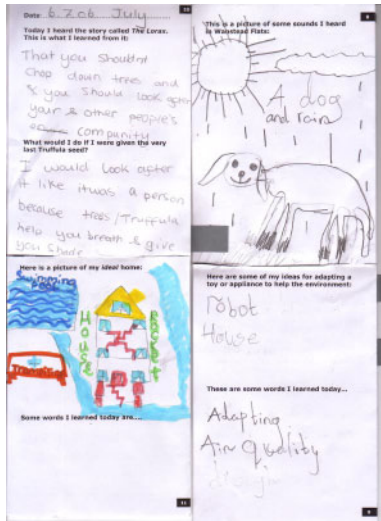 Date: 6.7.06 July
10
Today I heard the story called The Lorax.
This is what I learned from it:
That you shouldnt
chop down trees and
& you should look after
your & other people's
compunity
What would I do if I were given the very
last Truffula seed?
I would look after
it like it was a person
because trees/Truffula
help you breath & give
you shade
This is a picture of some sounds I heard
in Wanstead Flats:
A dog
and rain
Here is a picture of my ideal home:
Swimming
Pool
House
Robot
Some words I learned today are....
11
Here are some of my ideas for adapting a
toy or appliance to help the environment:
robot
House
These are some words I learned today...
Adapting
Air quality